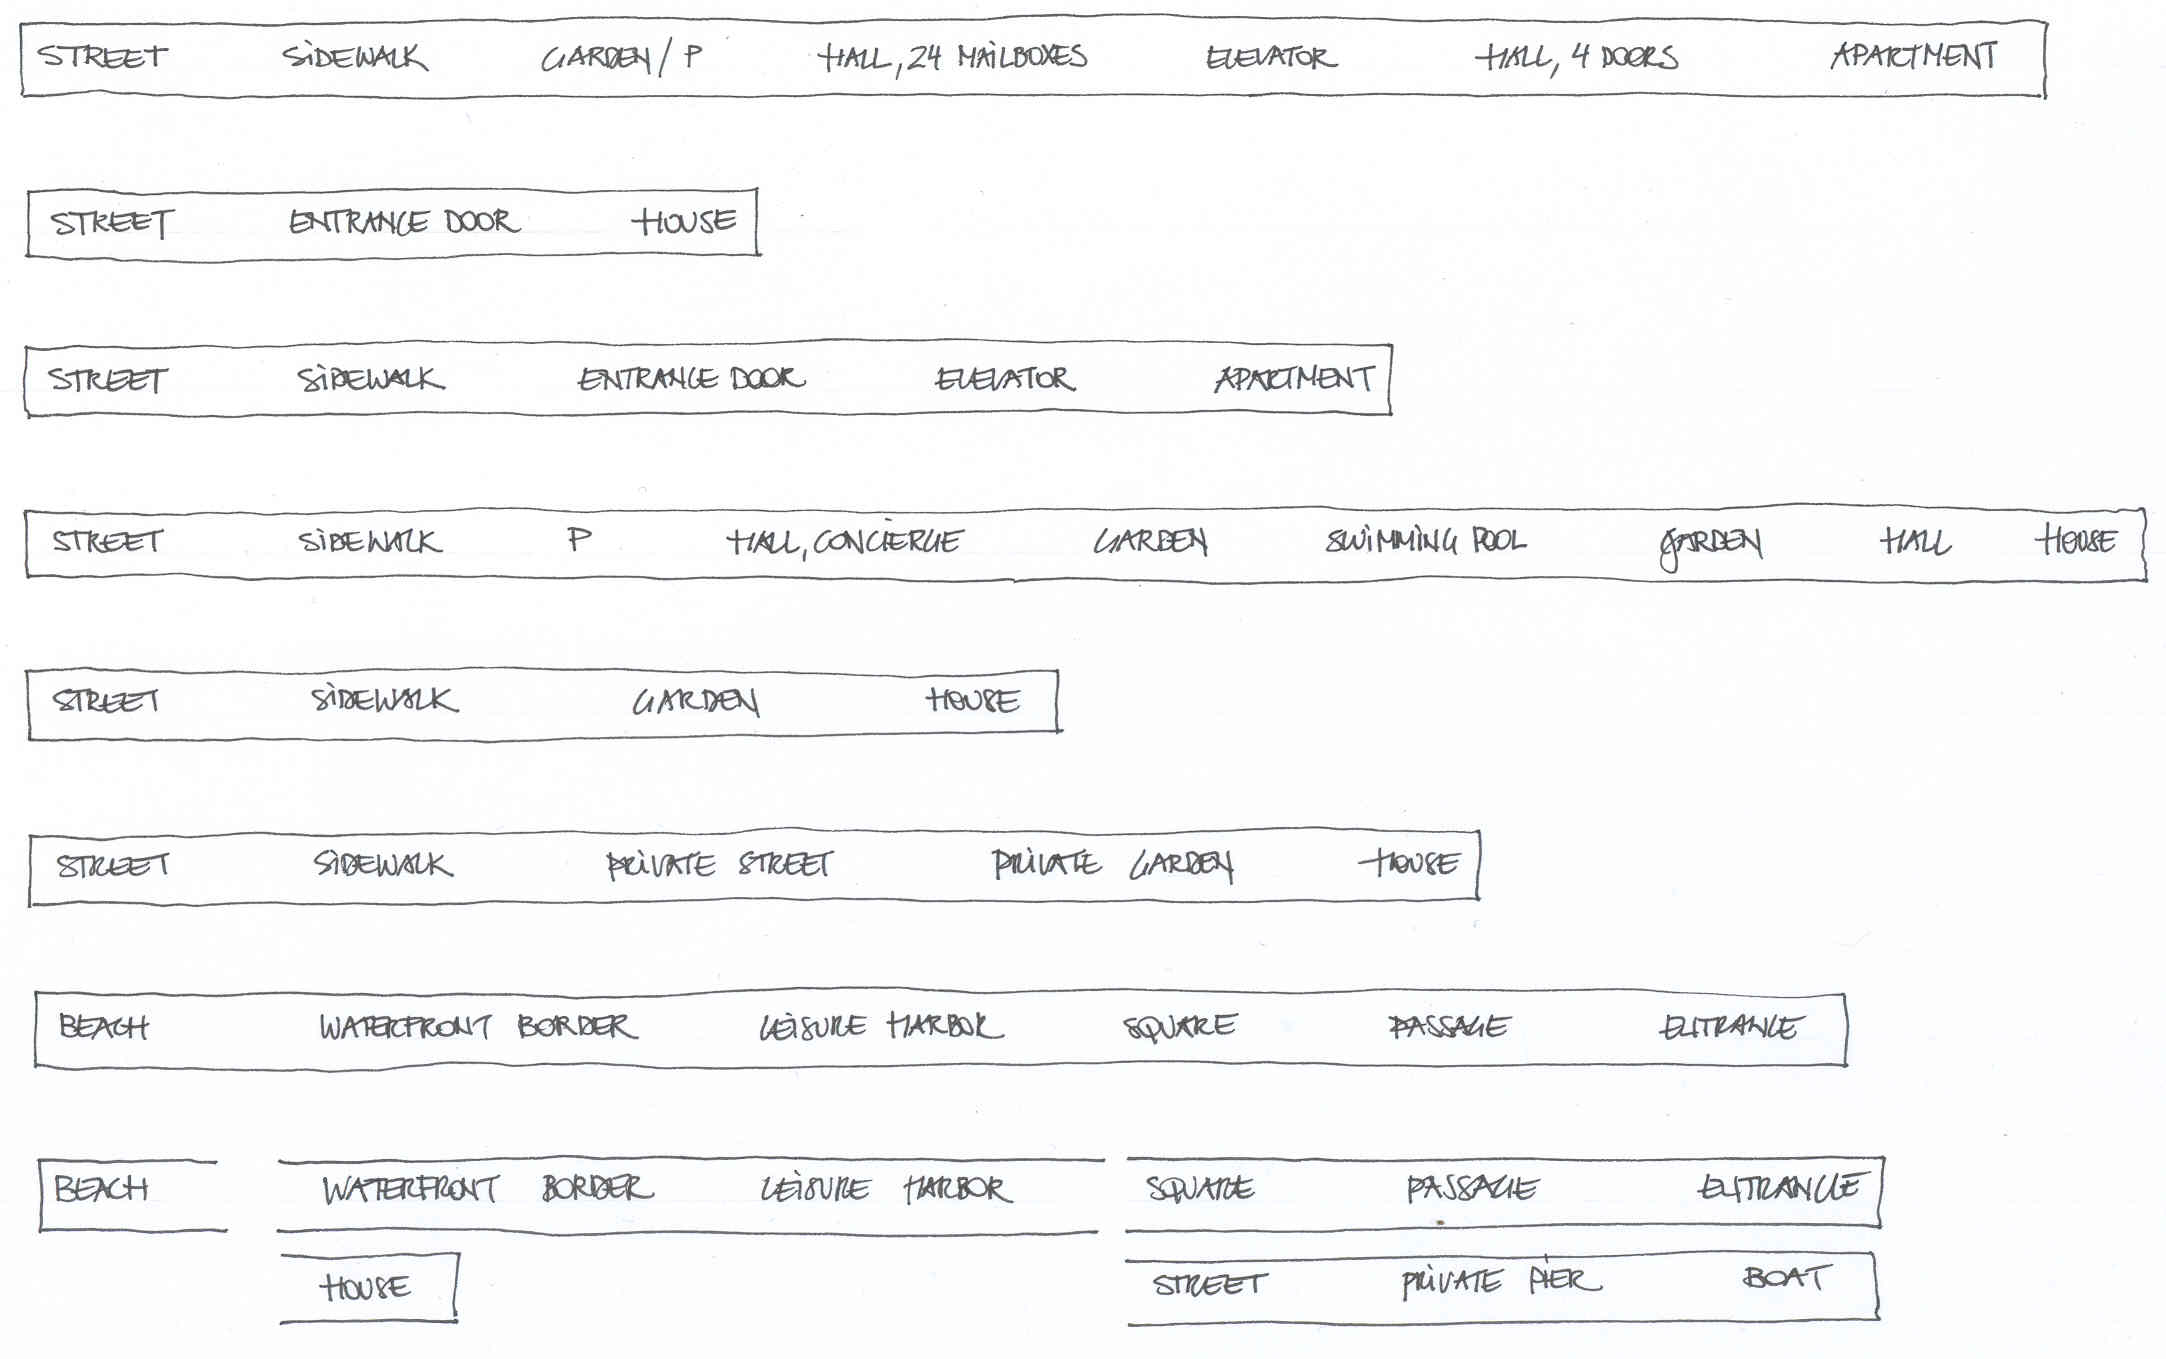 STREET SIDEWALK GARDEN / P HALL, 24 MAILBOXES ELEVATOR HALL, 4 DOORS APARTMENT
STREET ENTRANCE DOOR HOUSE
STREET SIDEWALK ENTRANCE DOOR ELEVATOR APARTMENT
STREET SIDEWALK P HALL, CONCIERGE GARDEN SWIMMING POOL GARDEN HALL HOUSE
STREET SIDEWALK GARDEN HOUSE
STREET SIDEWALK PRIVATE STREET PRIVATE GARDEN HOUSE
BEACH WATERFRONT BORDER LEISURE HARBOR SQUARE PASSAGE ENTRANCE
BEACH WATERFRONT BORDER LEISURE HARBOR SQUARE PASSAGE ENTRANCE
HOUSE STREET PRIVATE PIER BOAT